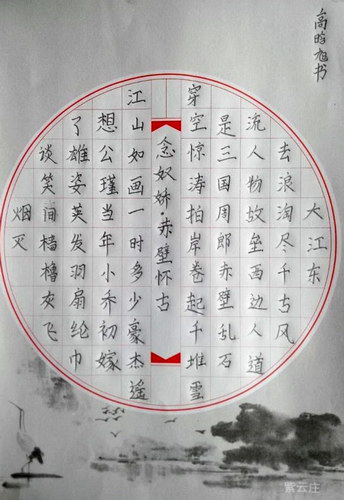 大江东
去浪淘尽千古风
流人物故垒西边人道
是三国周郎赤壁乱石
穿空惊涛拍岸卷起千堆雪
念奴娇·赤壁怀古
江山如画一时多少豪杰遥
想公瑾当年小乔初嫁
了雄姿英发羽扇纶巾
谈笑间樯橹灰飞
烟灭
高旭书
紫云庄